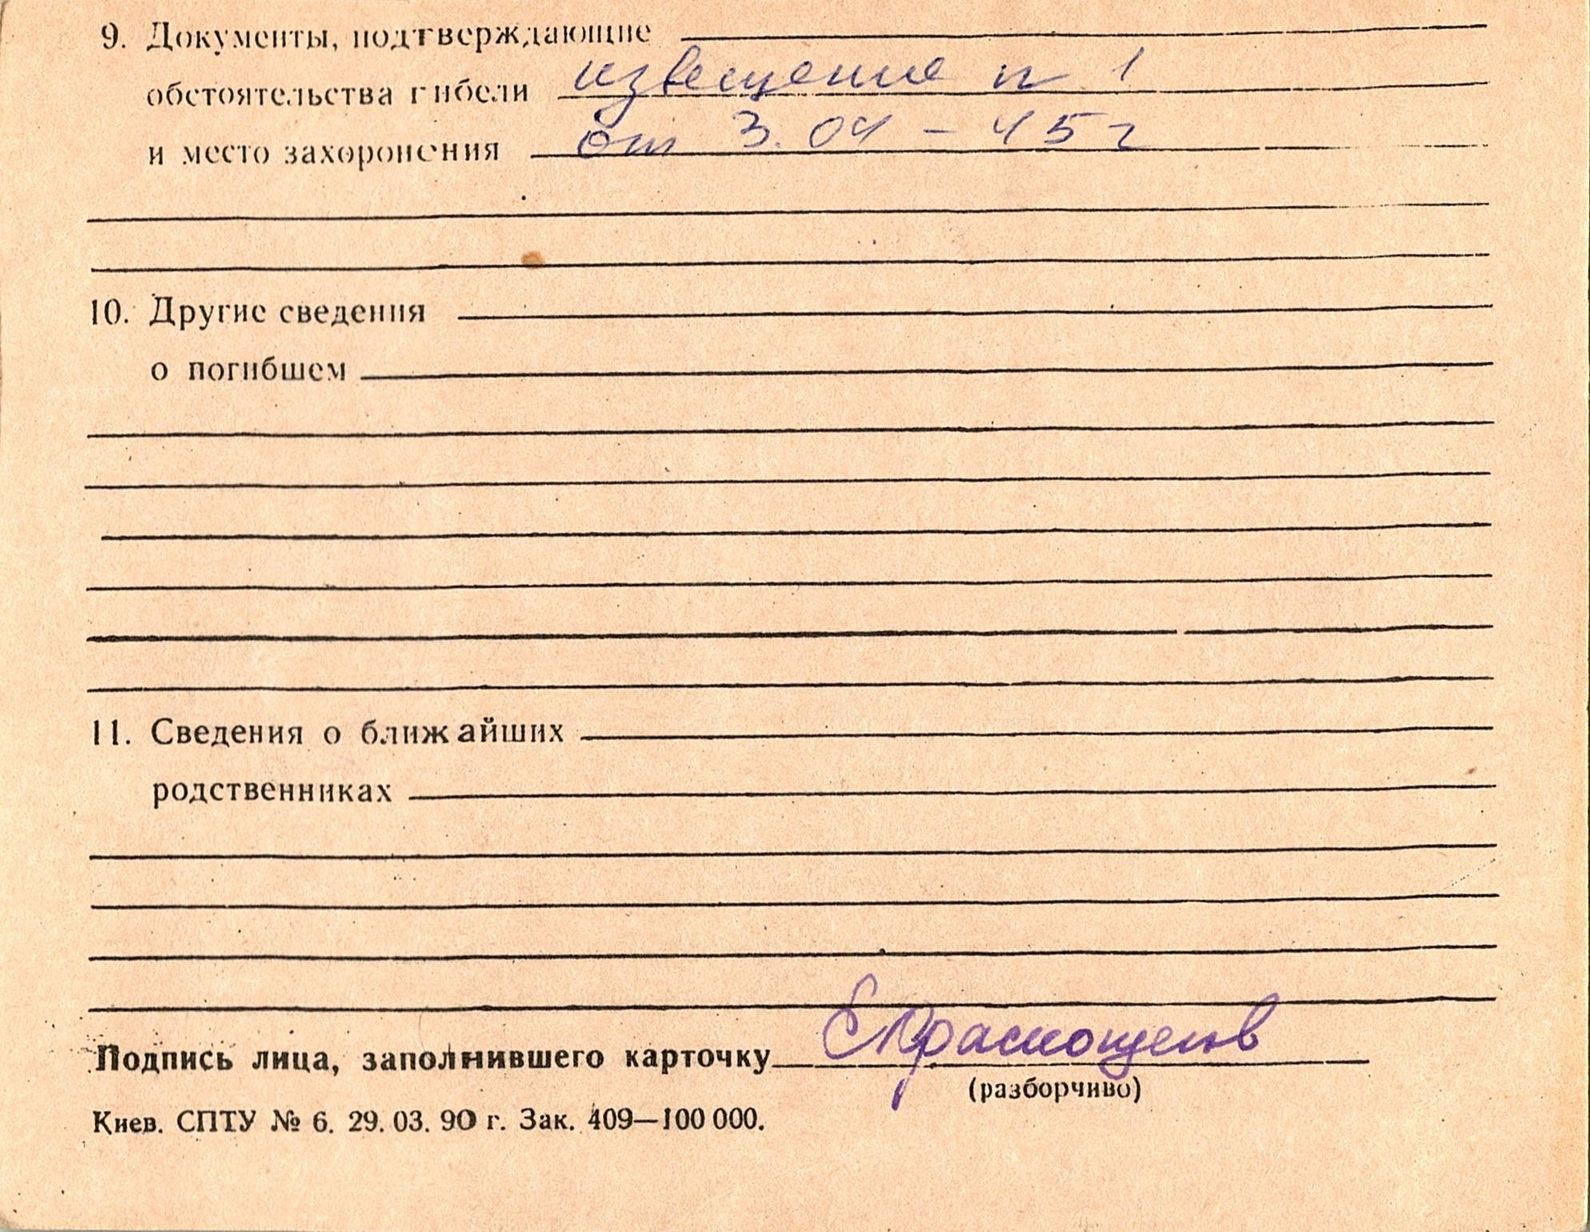 9. Документы, подтверждающие
обстоятельства гибели извещение № 1
и место захоронения от 3.04-45г
10. Другие сведения
о погибшем
11. Сведения о ближайших
родственниках
Подпись лица, заполнившего карточку Краснощеков
(разборчиво)
Киев. СПТУ № 6. 29.03.90 г. Зак. 409—100 000.